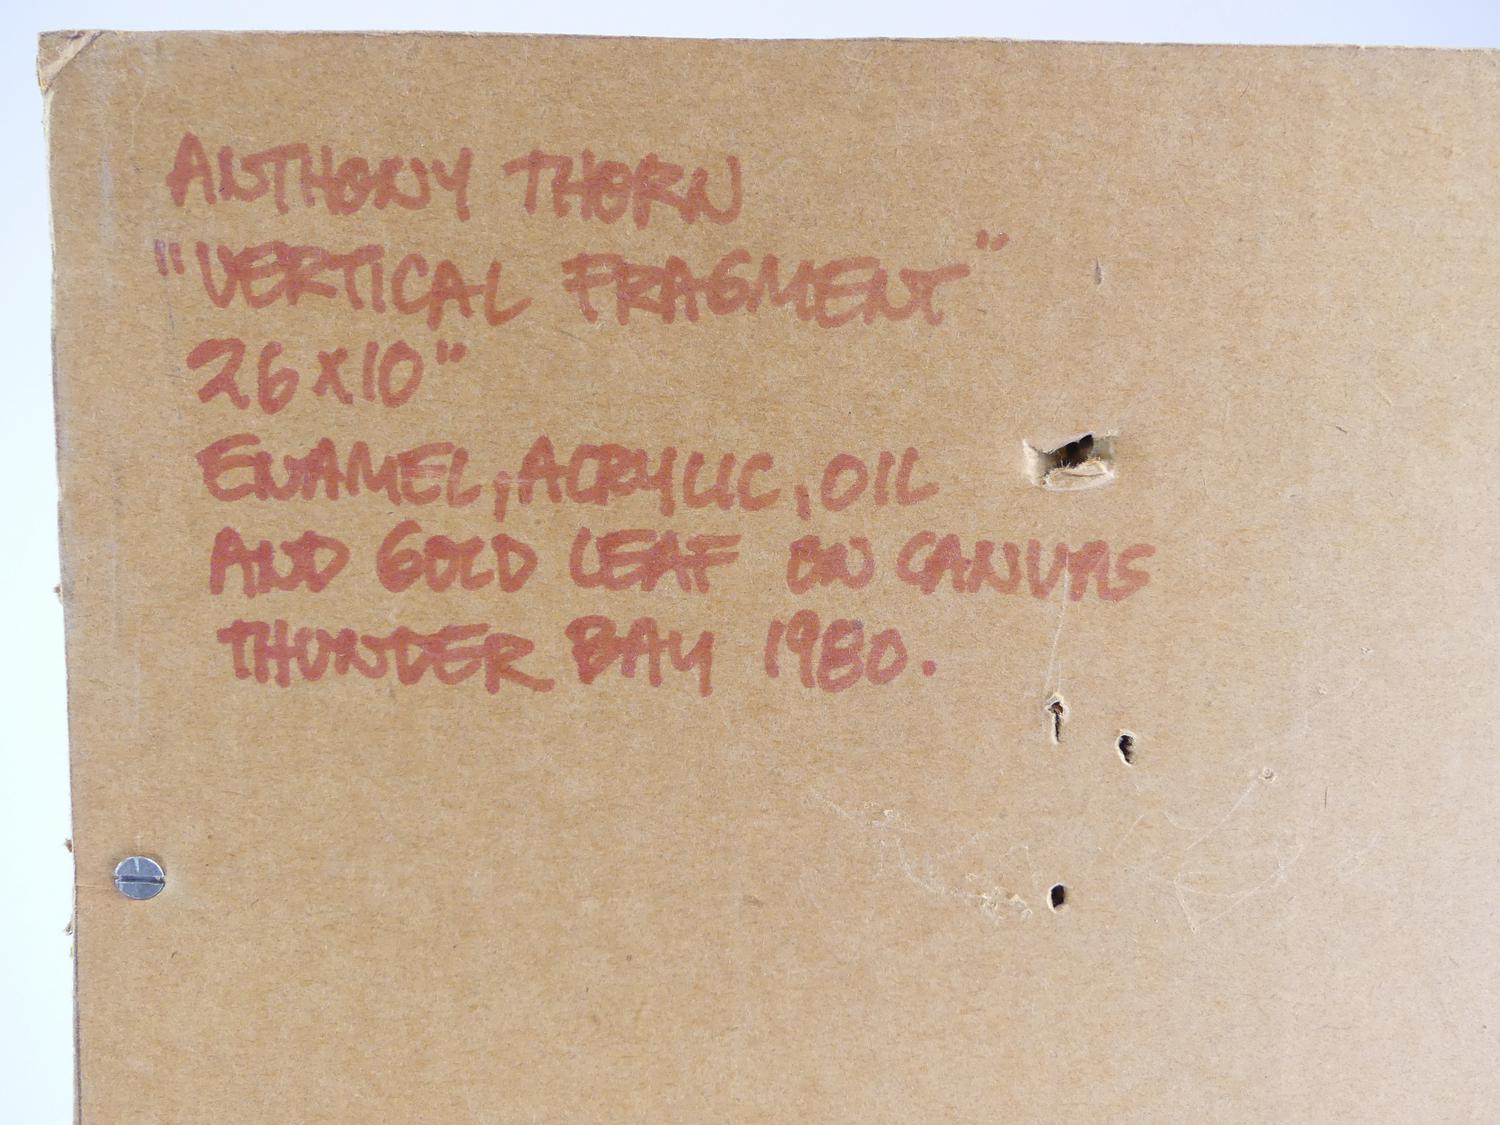 ANTHONY THORN
"VERTICAL FRAGMENT"
26x10"
ENAMEL, ACRYLIC, OIL
AND GOLD LEAF ON CANVAS
THUNDER BAY 1980.